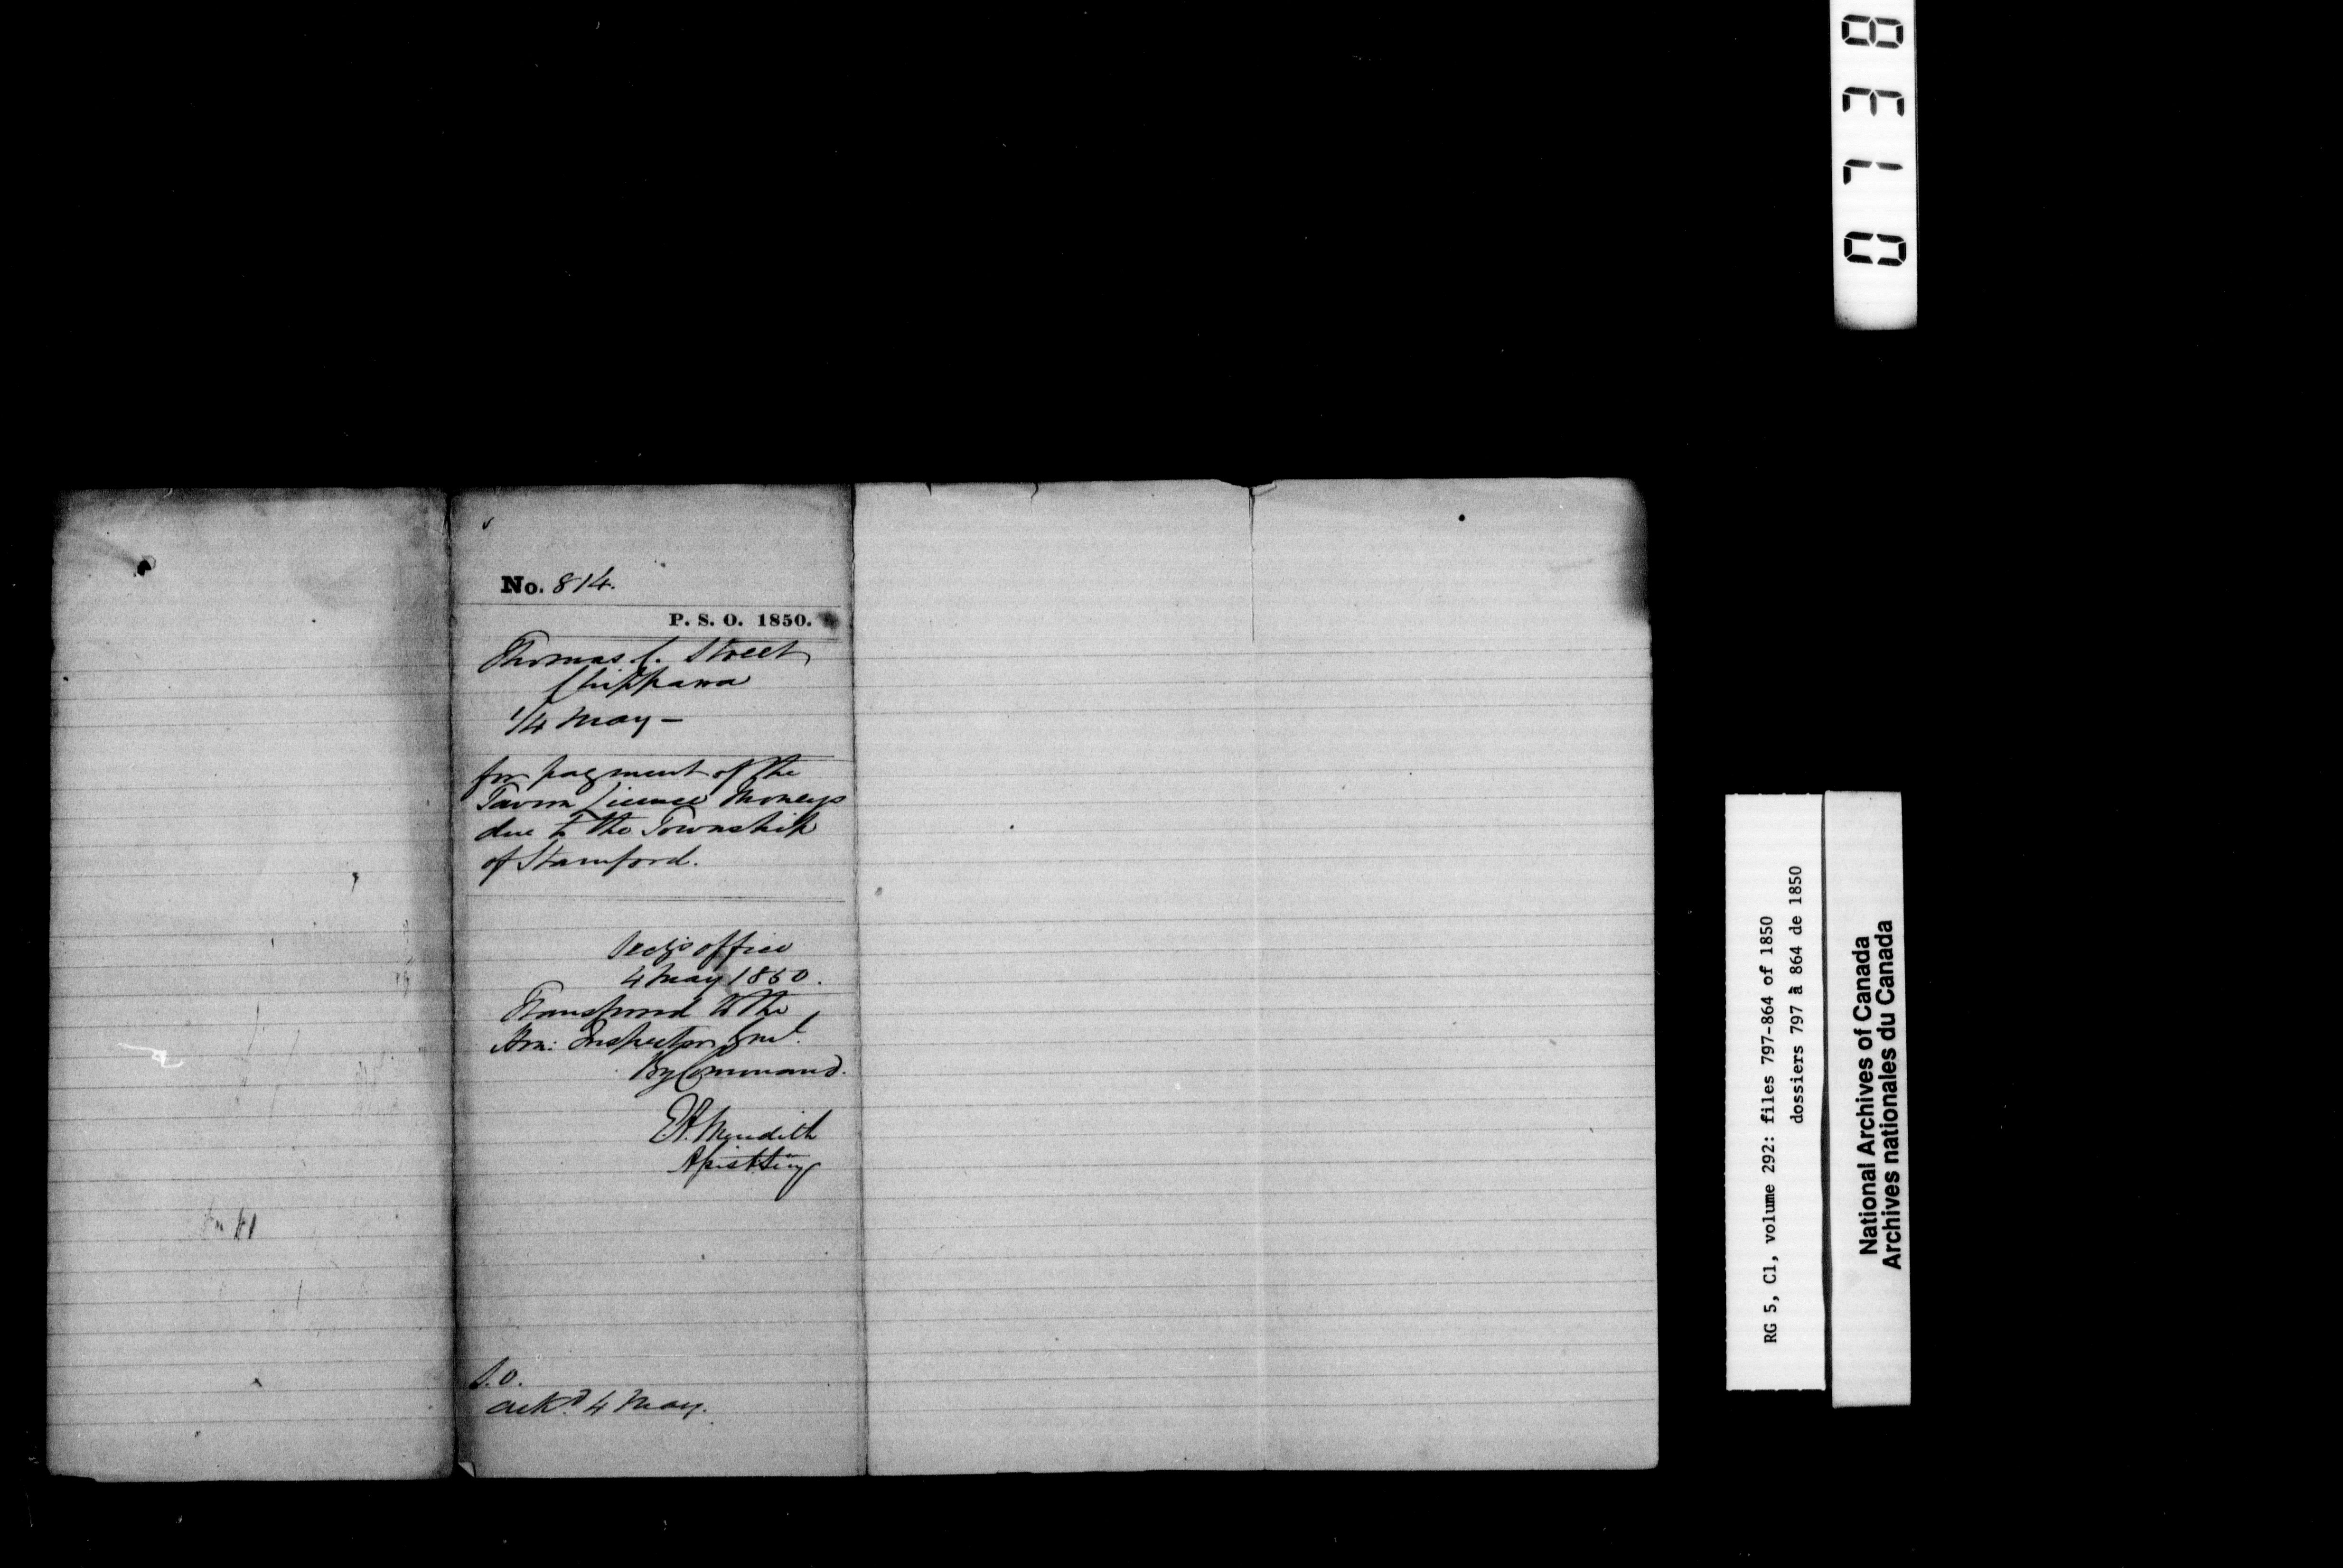 No. 814.
P. S. O. 1850.
Thomas C. Street
Chippawa
1/4 May -
for payment of the
Tavern License Moneys
due to the Township
of Stamford.
Secy's office
4 May 1850.
Transferred to the
Hon: Inspector Genl.
By Command.
E A. Meredith
Assist Secy
S.O.
ackd. 4 May.
0738
RG 5, C1, volume 292: files 797-864 of 1850
dossiers 797 à 864 de 1850
National Archives of Canada
Archives nationales du Canada